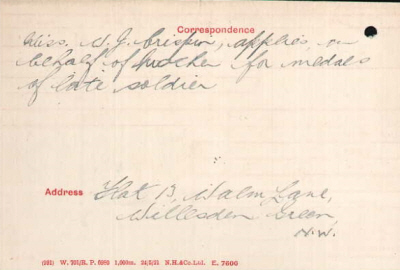 Correspondence
Miss. W. J. Crispin, applies, on
behalf of mother for medals
of late soldier
Address Flat B, Walm Lane,
Willesden Green,
N.W.
N.H.&Co.Ltd. E. 7600